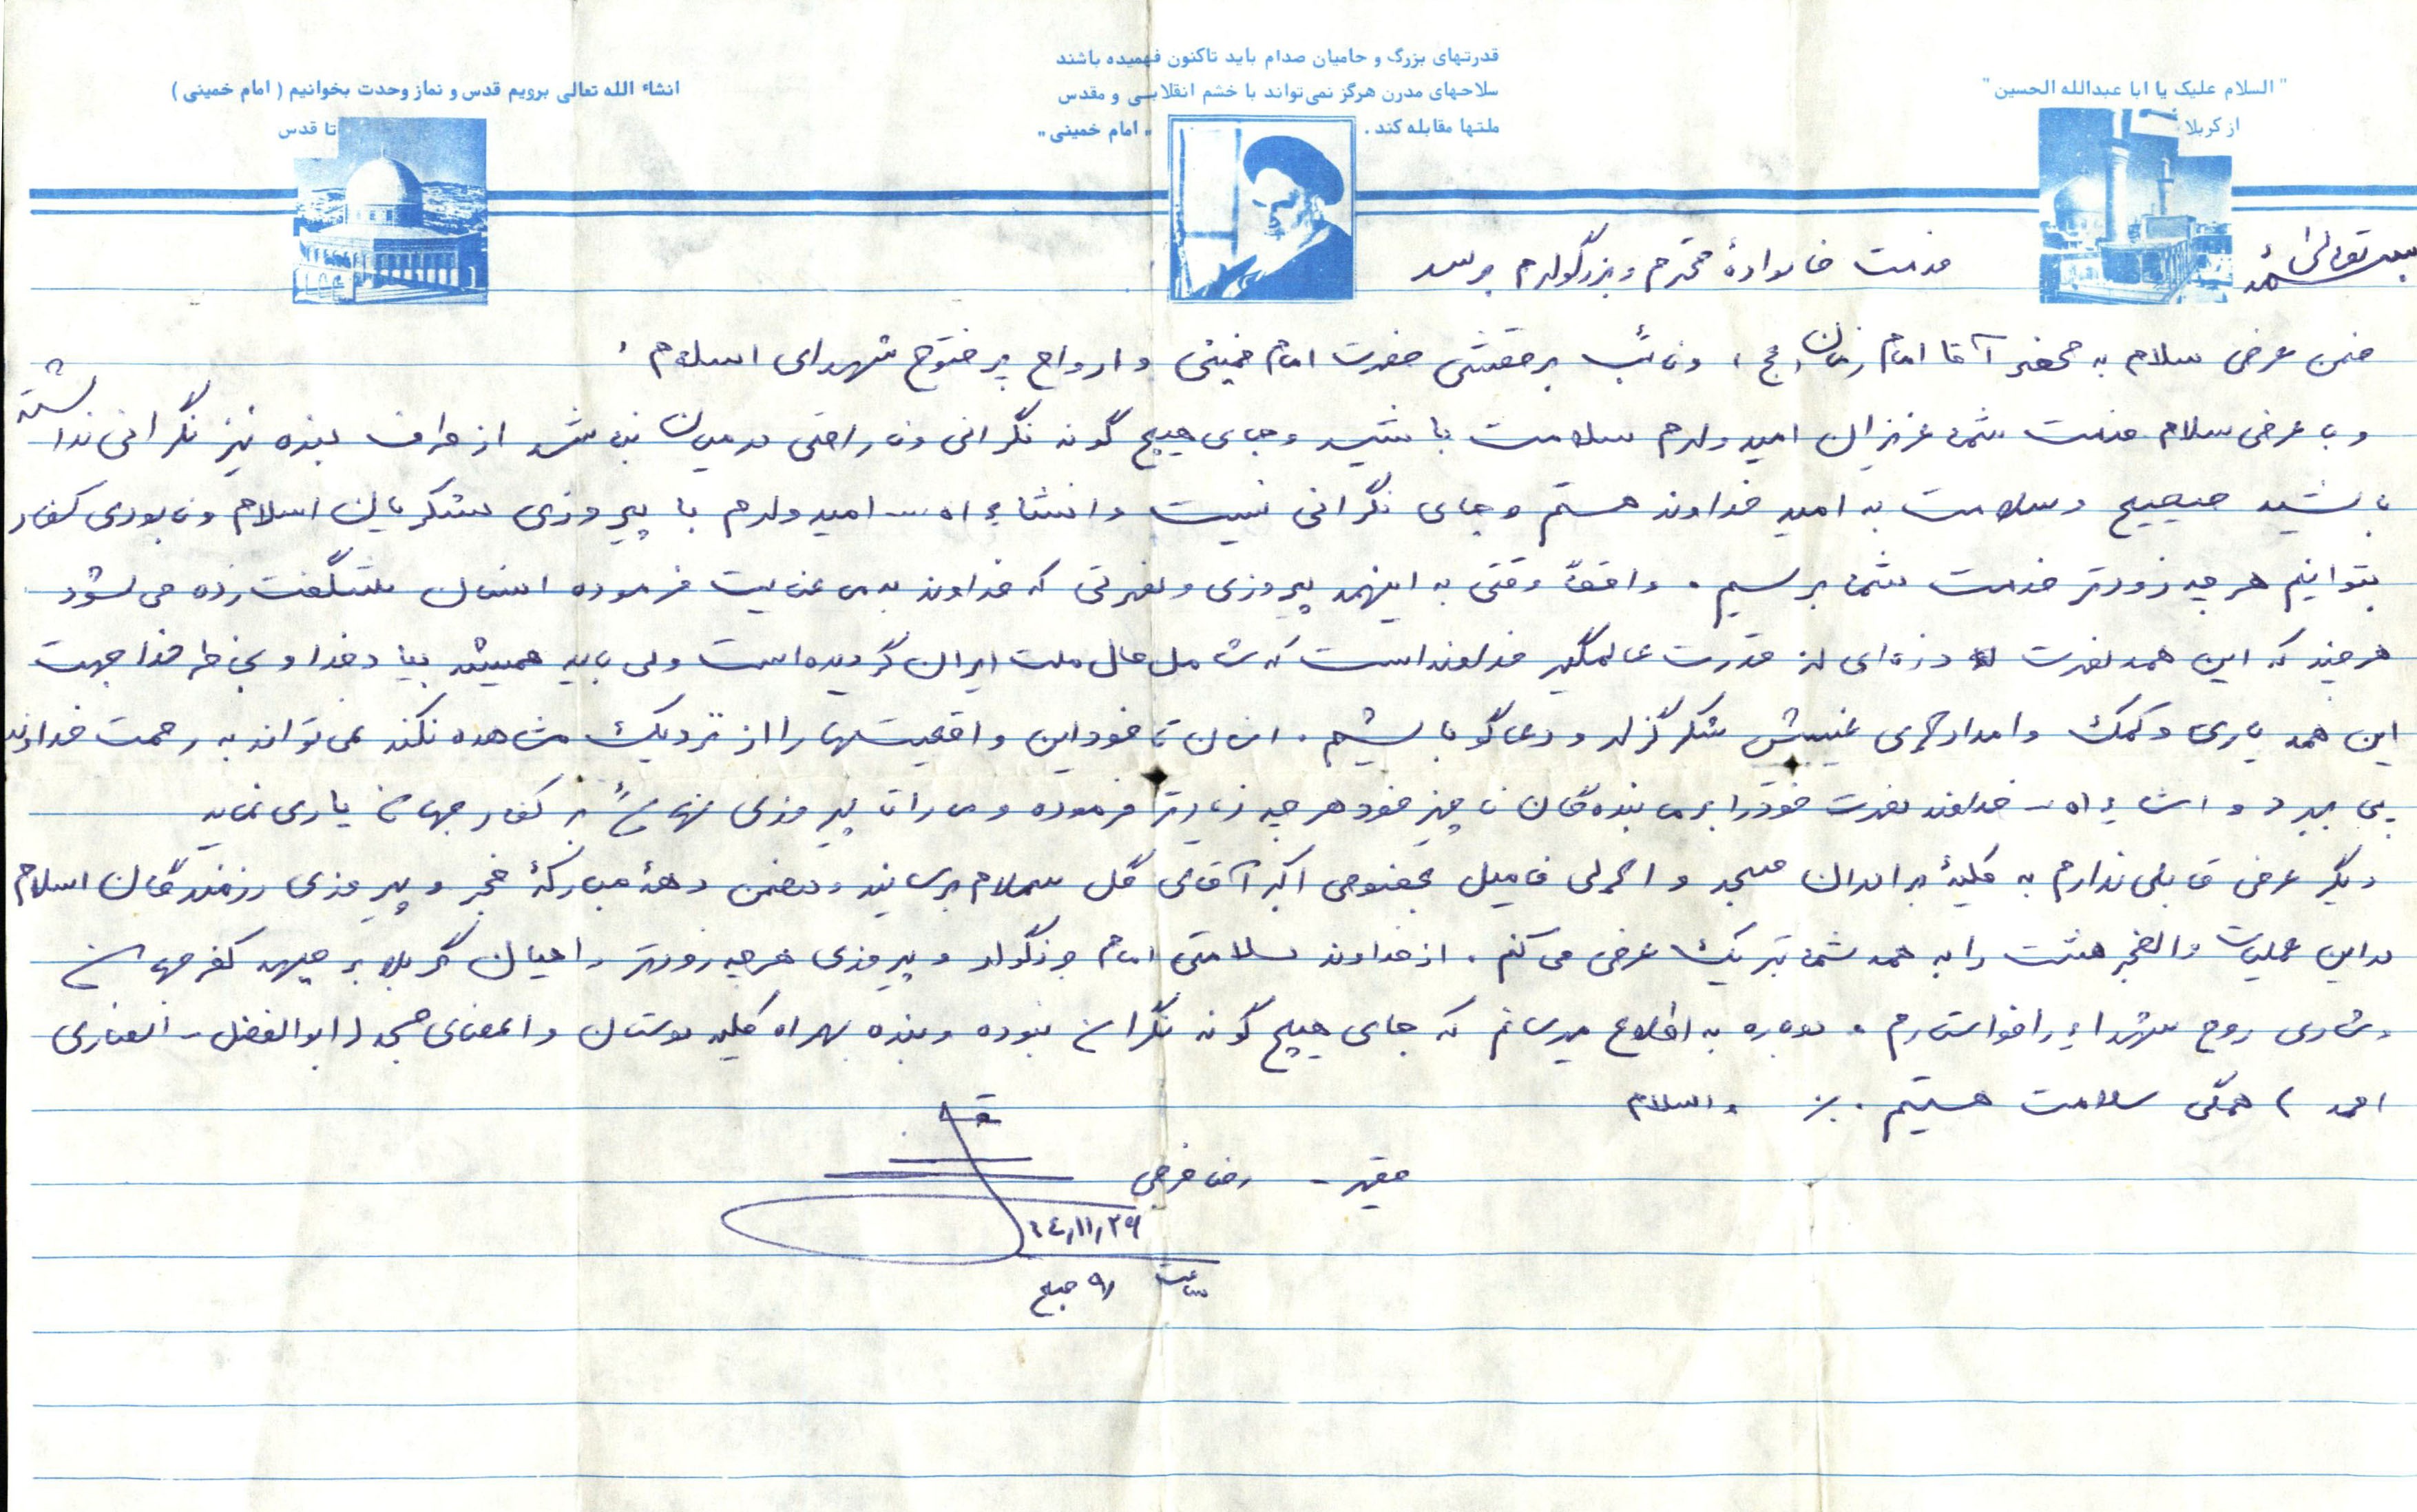 قدرتهای بزرگ و حامیان صدام باید تاکنون فهمیده باشند
سلاحهای مدرن هرگز نمی‌تواند با خشم انقلابی و مقدس
ملتها مقابله کند. "امام خمینی"
"السلام علیک یا ابا عبدالله الحسین"
از کربلا
انشاء الله تعالی برویم قدس و نماز وحدت بخوانیم (امام خمینی)
تا قدس
بسمه تعالی
خدمت خانوادۀ محترم و بزرگوارم برسد
ضمن عرض سلام به محضر آقا امام زمان (عج) و نائب برحقش حضرت امام خمینی و ارواح پرفتوح شهدای اسلام
و با عرض سلام خدمت شما عزیزان امیدوارم سلامت باشید و جای هیچ گونه نگرانی و ناراحتی در میان نباشد از طرف بنده نیز نگرانی نداشته
باشید صحیح و سلامت به امید خداوند هستم و جای نگرانی نیست و انشاءاله امیدوارم با پیروزی لشکریان اسلام و نابودی کفار
بتوانیم هر چه زودتر خدمت شما برسیم. واقعاً وقتی به اینهمه پیروزی و نصرتی که خداوند به ما عنایت فرموده انسان شگفت زده می‌شود
هر چند که این همه نصرت ذره‌ای از قدرت عالمگیر خداوند است که شامل حال ملت ایران گردیده است ولی باید همیشه بیاد خدا و بخاطر خدا جهت
این همه یاری و کمک و امدادهای غیبیش شکرگزار و دعاگو باشیم. انسان تا خود این واقعیتها را از نزدیک مشاهده نکند نمی‌تواند به رحمت خداوند
پی ببرد و انشاءاله خداوند نصرت خود را بر ما بنده‌گان ناچیز خود هر چه زیادتر فرموده و ما را تا پیروزی نهائی بر کفار جهانی یاری نماید
دیگر عرض قابلی ندارم به کلیۀ برادران مسجد و اهالی فامیل بخصوص اکبر آقای گل سلام برسانید و در ضمن دهۀ مبارکۀ فجر و پیروزی رزمندگان اسلام
در این عملیات والفجر هشت را به همه شما تبریک عرض می‌کنم. از خداوند سلامتی امام بزرگوار و پیروزی هر چه زودتر راهیان کربلا بر جبهه کفر جهانی
و شادی روح شهداء را خواستارم. دوباره به اطلاع میرسانم که جای هیچ گونه نگرانی نبوده و بنده بهمراه کلیه دوستان و اعضای مسجد (ابوالفضل - انصاری
احمد) همگی سلامت هستیم. والسلام
حقیر - رضا فرجی
۶۴,۱۱,۲۹
ساعت ۹ صبح